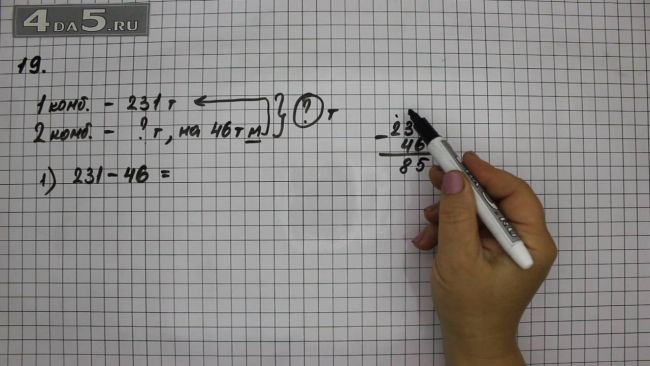 4DA5.RU
19.
1 комб. - 231 т
2 комб. - ? т, на 46 т м } ? т
1) 231 - 46 =
- 23
46
85